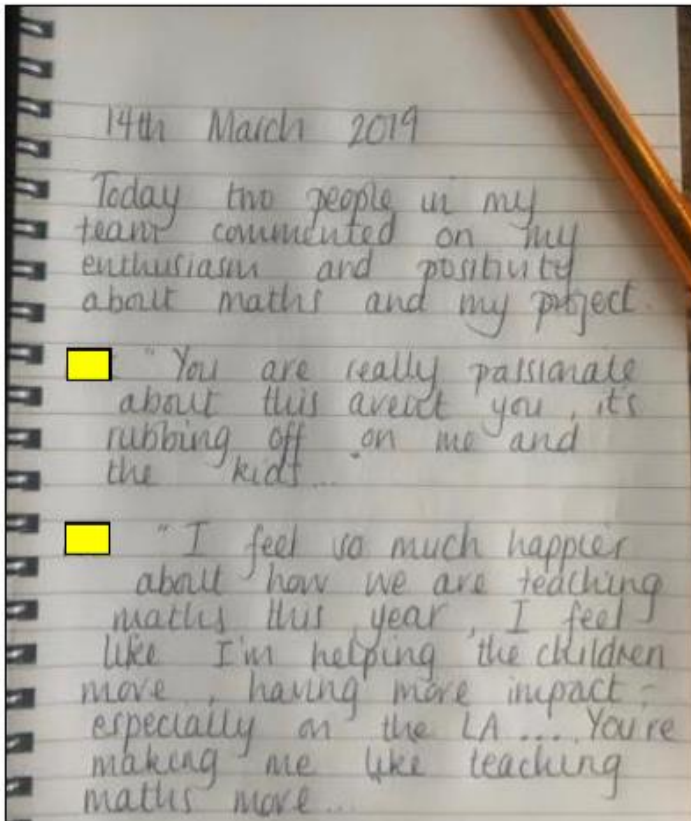 14th March 2019
Today two people in my
team commented on my
enthusiasm and positivity
about maths and my project.
"You are really passionate
about this arent you, it's
rubbing off on me and
the kids...
"I feel so much happier
about how we are teaching
maths this year, I feel
like I'm helping the children
more, having more impact -
especially on the LA.... You're
making me like teaching
maths more...